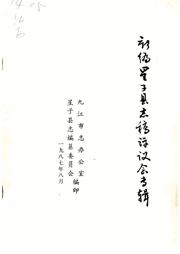 新编星子县志稿评议会专辑
九江市志办公室
星子县志编纂委员会
编印
一九八七年八月